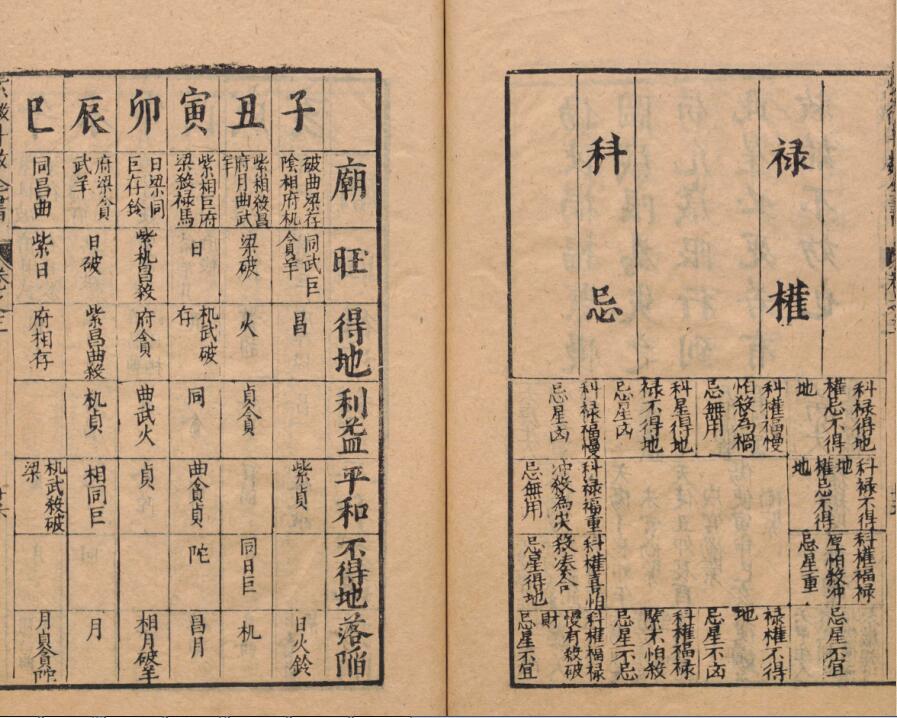 祿
權
科
忌
科祿得地
權忌不得
地
科權福慢
怕殺為禍
忌無用
科星得地
祿不得地
忌星凶
科祿福慢
忌星凶
科祿不得
地
權忌不得
地
科祿福重
冲殺為災
忌無用
科權福祿
厚怕殺冲
忌星重
科權喜怕
殺湊合
忌星得地
忌星不宜
祿權不得
地
忌星不凶
科權福祿
緊不怕殺
忌星不忌
科權福祿
慢有殺破
財
忌星不宜
廟
旺
得地
利益
平和
不得地
落陷
子
破曲梁存
陰相府机
同武巨
貪羊
昌
紫貞
日火鈴
丑
紫相殺昌
府月曲武
羊
梁破
火
貞貪
同日巨
机
寅
紫相巨府
梁殺祿馬
日
机武破
存
同
曲貪貞
陀
昌月
卯
日梁同
巨存鈴
紫机昌殺
府貪
曲武火
貞
相月破羊
辰
府梁貪
武羊
日破
紫昌曲殺
机貞
相同巨
月
巳
同昌曲
紫日
府相存
机武殺破
梁
月貞貪陀